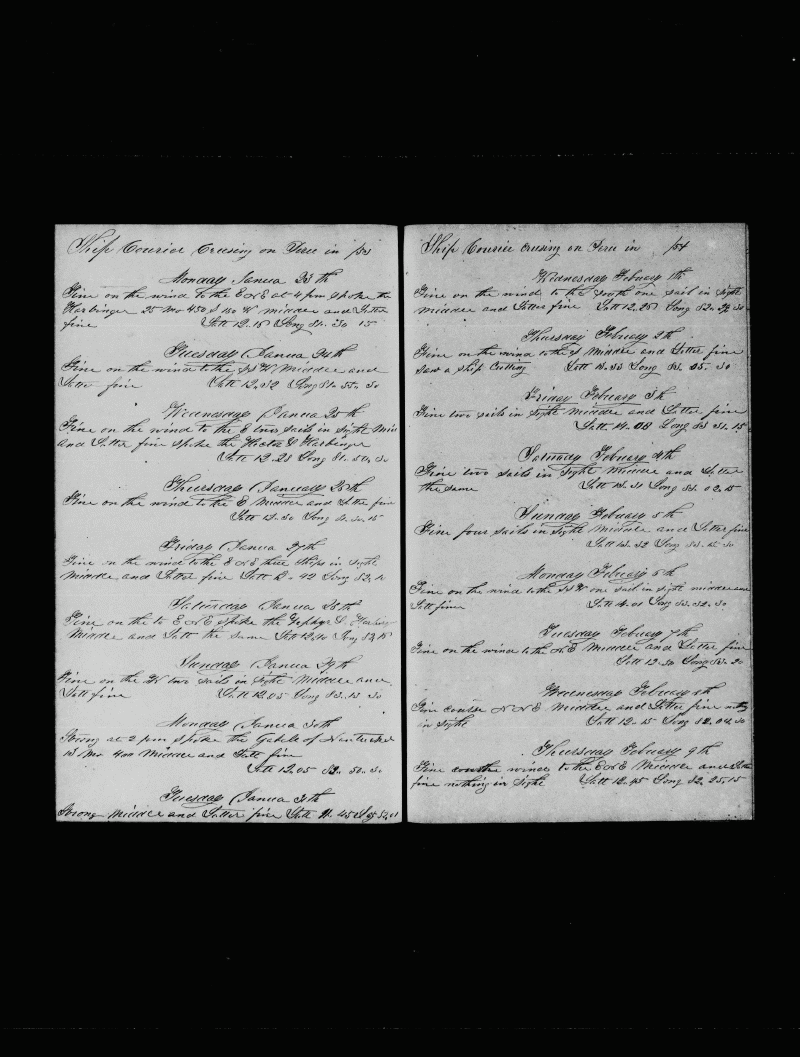 Ship Courier Crusing on Peru in 153
Monday Janua 23 th
Fine on the wind to the E N E at 4 pm spoke the
Harbinger 25 Mo 450 S 150 W middle and Latter
fine Latt 12.18 Long 81.30 15
Tuesday Janua 24th
Fine on the wind to the S W Middle and
Latter fine Latt 12.32 Long 81.55.30
Wednesday Janua 25th
Fine on the wind to the E two sails in sight Mid
and Latter fine spoke the Hector & Harbinger
Latt 12.28 Long 81.50.30
Thursday January 26th
Fine on the wind to the E Middle and Latter fine
Latt 12.30 Long 30.15
Friday Janua 27th
Fine on the wind to the E N E three Ships in sight
Middle and Latter fine Latt 12.42 Long 82.
Saturday Janua 28th
Fine on the to E N E spoke the Zephyr &
Middle and Latt the same Latt 12.20 Long
Sunday Janua 29th
Fine on the W two sails in sight Middle and
Latt fine Latt 12.05 Long 83.13 30
Monday Janua 30th
Strong at 2 pm spoke the of Nantucket
13 Mo 400 Middle and Latt fine
Latt 12.05 82.50.30
Tuesday Janua 31th
Strong Middle and Latter fine Latt 11.45
Ship Courier crusing on Peru in 154
Wednesday Febuary 1th
Fine on the wind to the E one sail in sight
Middle and Latter fine Latt 12.28 Long 82.
Thursday Febuary 2th
Fine on the wind to the S Middle and Latter fine
saw a ship Cutting Latt 13.33 Long 83.05.30
Friday Febuary 3th
Fine two sails in sight Middle and Latter fine
Latt 14.08 Long 83 31.15
Saturday Febuary 4th
Fine two sails in sight Middle and Latter
the same Latt 13.51 Long 83.02.15
Sunday Febuary 5th
Fine four sails in sight Middle and Latter fine
Latt 13.52 Long 83.15.30
Monday Febuary 6th
Fine on the wind to the S W one sail in sight middle and
Latt fine Latt 14.01 Long 83.32.30
Tuesday Febuary 7th
Fine on the wind to the N.E Middle and Latter fine
Latt 12.50 Long 83.20
Wednesday Febuary 8th
Fine course N N E Middle and Latter fine nothing
in sight Latt 12.15 Long 82.04.30
Thursday Febuary 9th
Fine wind to the E N E Middle and Latter
fine nothing in sight Latt 12.45 Long 82.25.15